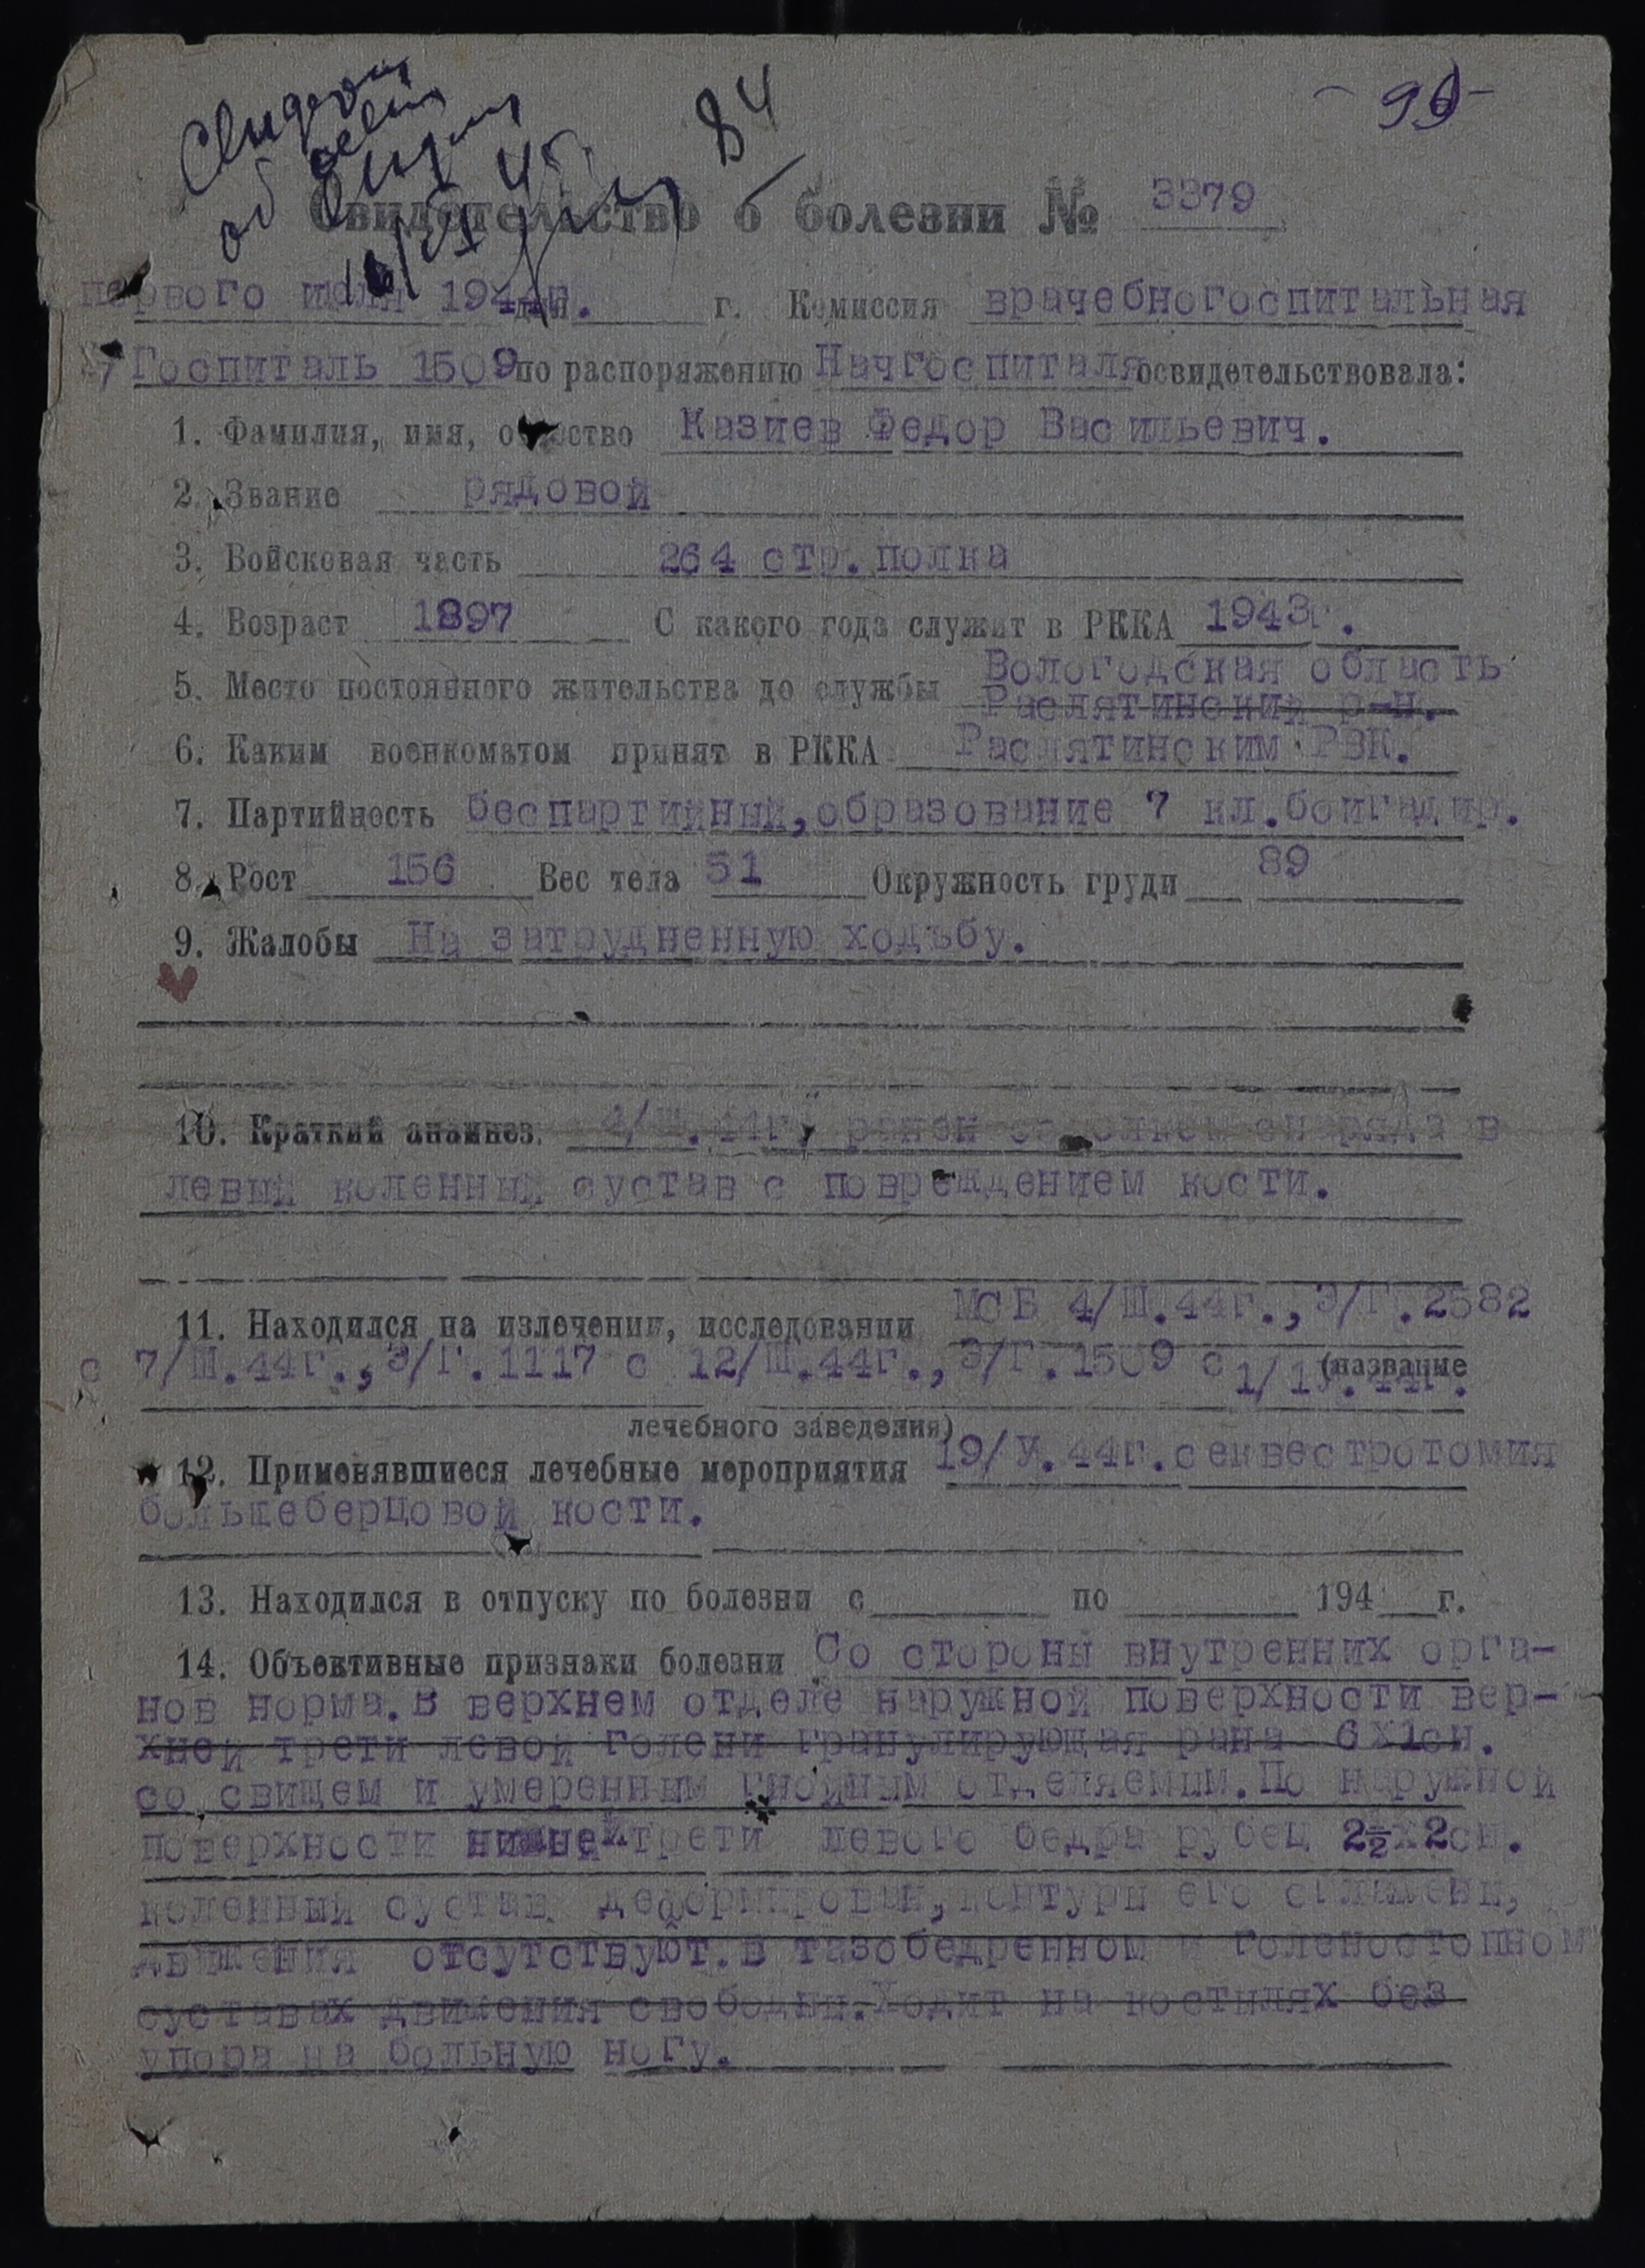 84
Свидетельство о болезни № 3379
первого июля 1944г. дня г. Комиссия врачебногоспитальная
Госпиталь 1509 по распоряжению Начгоспиталя освидетельствовала:
1. Фамилия, имя, отчество Казиев Федор Васильевич.
2. Звание рядовой
3. Войсковая часть 264 стр.полка
4. Возраст 1897 С какого года служит в РККА 1943г.
5. Место постоянного жительства до службы Вологодская область
Раслятинский р-н.
6. Каким военкоматом принят в РККА Раслятинским РВК.
7. Партийность беспартийный, образование 7 кл.
8. Рост 156 Вес тела 51 Окружность груди 89
9. Жалобы На затрудненную ходьбу.
10. Краткий анамнез. 4/Ш.44г. ранен осколком снаряда в
левый коленный сустав с повреждением кости.
11. Находился на излечении, исследовании МСБ 4/Ш.44г.,Э/Г.2582
с 7/Ш.44г.,Э/Г.1117 с 12/Ш.44г.,Э/Г.1509 с 1/1У.44г. (название
лечебного заведения)
12. Применявшиеся лечебные мероприятия 19/У.44г.секвестротомия
большеберцовой кости.
13. Находился в отпуску по болезни с по 194 г.
14. Объективные признаки болезни Со стороны внутренних орга-
нов норма.В верхнем отделе наружной поверхности вер-
хней трети левой голени гранулирующая рана 6х1см.
со свищем и умеренным гнойным отделяемым.По наружной
поверхности нижней трети левого бедра рубец 2½х2см.
коленный сустав деформирован,контуры его сглажены,
движения отсутствуют.В тазобедренном и голеностопном
суставах движения свободны.Ходит на костылях без
упора на больную ногу.